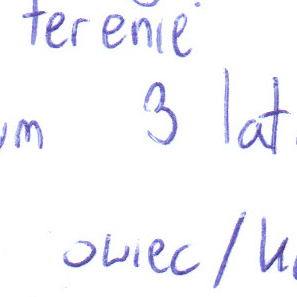 terenie
3 lat
owiec/